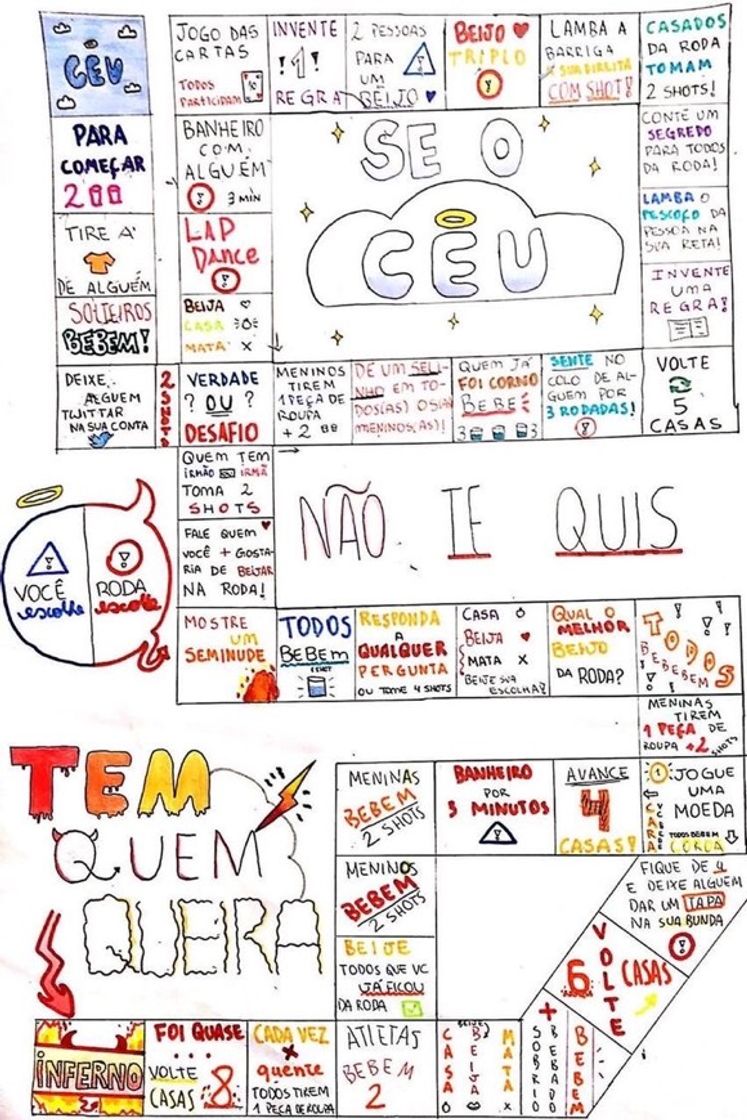 CÉU
PARA
COMEÇAR
2
TIRE A
DE ALGUÉM
SOLTEIROS
BEBEM!
DEIXE
ALGUÉM
TWITTAR
NA SUA CONTA
2 SHOTS
JOGO DAS
CARTAS
TODOS
PARTICIPAM
INVENTE
!1!
REGRA
2 PESSOAS
PARA
UM
BEIJO
BEIJO
TRIPLO
LAMBA A
BARRIGA
A SUA DIREITA
COM SHOT!
CASADOS
DA RODA
TOMAM
2 SHOTS!
BANHEIRO
COM
ALGUÉM
3 MIN
LAP
DANCE
BEIJA
CASA
MATA X
SE O
CÉU
CONTE UM
SEGREDO
PARA TODOS
DA RODA!
LAMBA O
PESCOÇO DA
PESSOA NA
SUA RETA!
INVENTE
UMA
REGRA!
VERDADE
? OU ?
DESAFIO
MENINOS
TIREM
1 PEÇA DE
ROUPA
+ 2
DE UM SELI-
NHO EM TO-
DOS(AS) OS(AS)
MENINOS(AS)!
QUEM JÁ
FOI CORNO
BEBE
3 3
SENTE NO
COLO DE AL-
GUEM POR
3 RODADAS!
VOLTE
5
CASAS
QUEM TEM
IRMÃO OU IRMÃ
TOMA 2
SHOTS
FALE QUEM
VOCÊ + GOSTA-
RIA DE BEIJAR
NA RODA!
NÃO TE QUIS
VOCÊ
escolhe
RODA
escolhe
MOSTRE
UM
SEMINUDE
TODOS
BEBEM
1 SHOT
RESPONDA
A
QUALQUER
PERGUNTA
OU TOME 4 SHOTS
CASA
BEIJA
MATA X
BEIJE SUA
ESCOLHA!
QUAL O
MELHOR
BEIJO
DA RODA?
TODOS
BEBEBEM
MENINAS
TIREM
1 PEÇA DE
ROUPA +2 SHOTS
TEM
QUEM
QUEIRA
MENINAS
BEBEM
2 SHOTS
BANHEIRO
POR
3 MINUTOS
AVANCE
4
CASAS!
1 JOGUE
UMA
MOEDA
CARA
TODOS BEBEM
COROA
MENINOS
BEBEM
2 SHOTS
FIQUE DE 4
E DEIXE ALGUEM
DAR UM TAPA
NA SUA BUNDA
BEIJE
TODOS QUE VC
JÁ FICOU
DA RODA
VOLTE
6 CASAS
INFERNO
FOI QUASE
...
VOLTE
CASAS 8
CADA VEZ
+
quente
TODOS TIREM
1 PEÇA DE ROUPA
ATLETAS
BEBEM
2
CASA
BEIJA
MATA X
+
SOBRIO
BEBEM